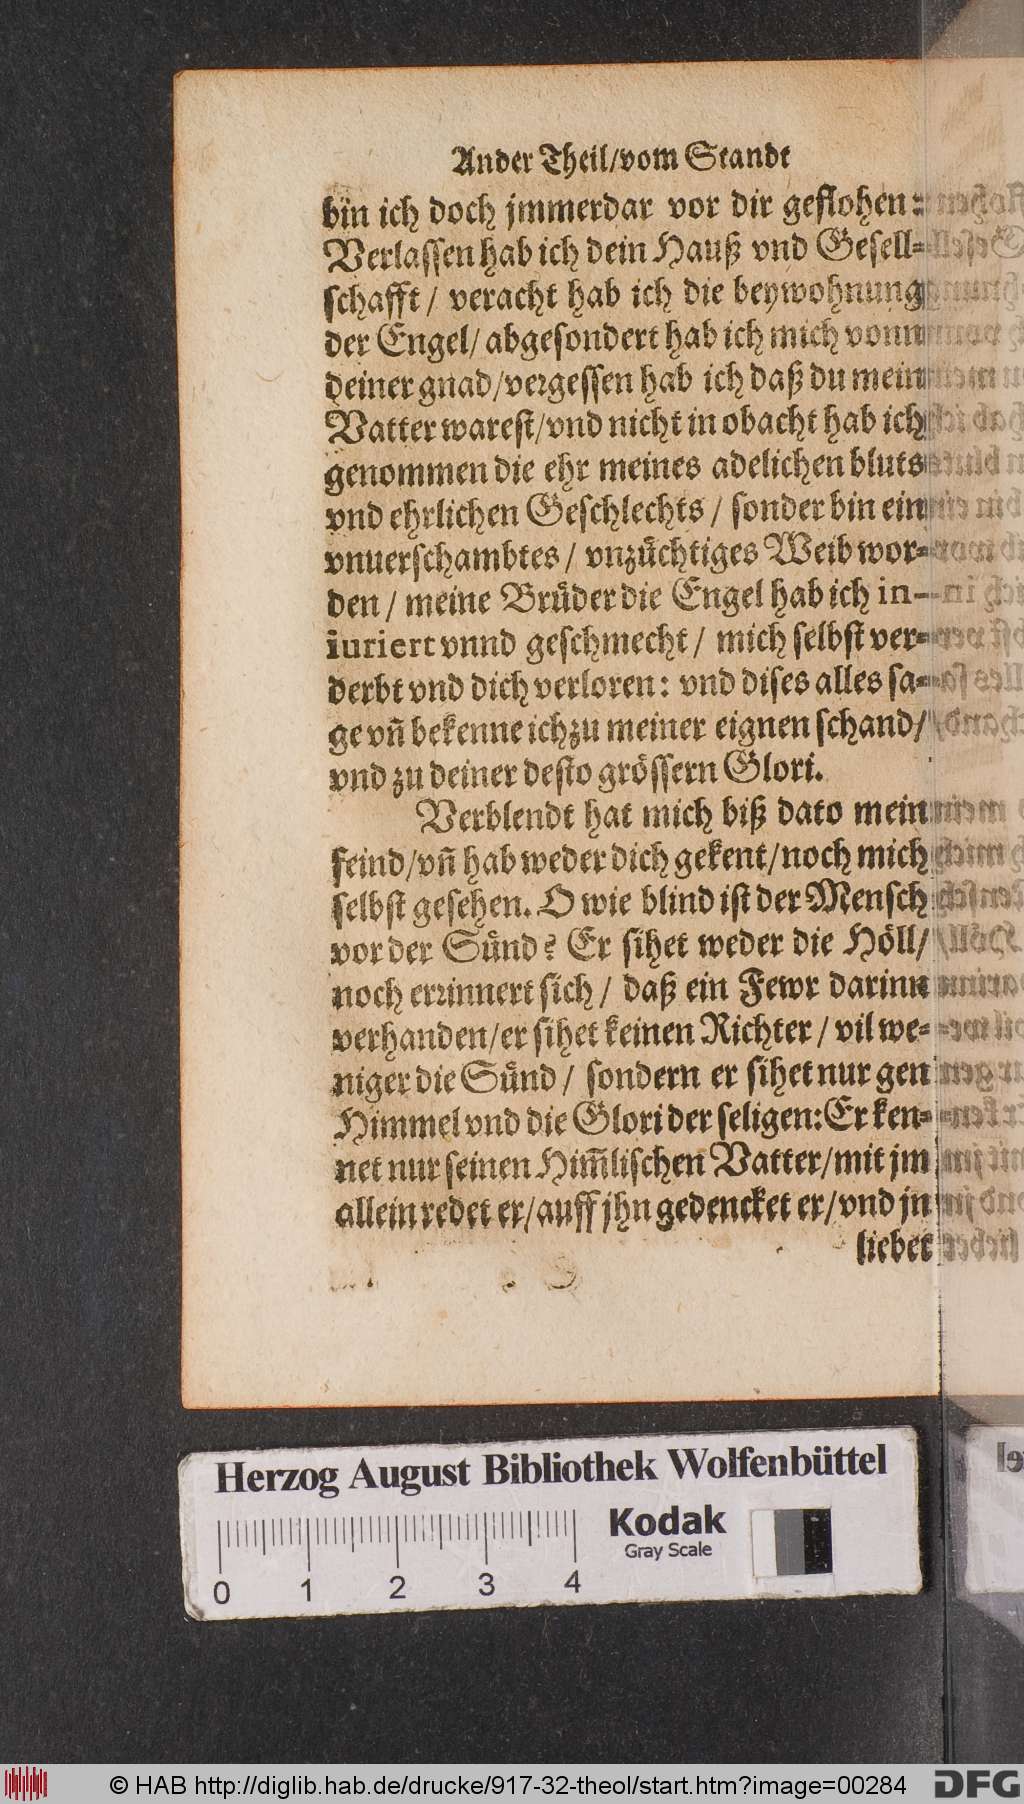 Ander Theil/vom Standt
bin ich doch jmmerdar vor dir geflohen:
Verlassen hab ich dein Hauß vnd Gesell-
schafft/ veracht hab ich die beywohnung
der Engel/ abgesondert hab ich mich vonn
deiner gnad/vergessen hab ich daß du mein
Vatter warest/vnd nicht in obacht hab ich
genommen die ehr meines adelichen bluts
vnd ehrlichen Geschlechts/ sonder bin ein
vnuerschambtes/ vnzüchtiges Weib wor-
den/ meine Brüder die Engel hab ich in-
iuriert vnnd geschmecht/ mich selbst ver-
derbt vnd dich verloren: vnd dises alles sa-
ge vñ bekenne ich zu meiner eignen schand/
vnd zu deiner desto grössern Glori.
Verblendt hat mich biß dato mein
feind/vñ hab weder dich gekent/noch mich
selbst gesehen. O wie blind ist der Mensch
vor der Sünd? Er sihet weder die Höll/
noch errinnert sich/ daß ein Fewr darinn
verhanden/er sihet keinen Richter/ vil we-
niger die Sünd/ sondern er sihet nur gen
Himmel vnd die Glori der seligen: Er ken-
net nur seinen Him̃lischen Vatter/mit jm
allein redet er/auff jhn gedencket er/vnd jn
liebet
Herzog August Bibliothek Wolfenbüttel
Kodak
Gray Scale
0 1 2 3 4
© HAB http://diglib.hab.de/drucke/917-32-theol/start.htm?image=00284
DFG